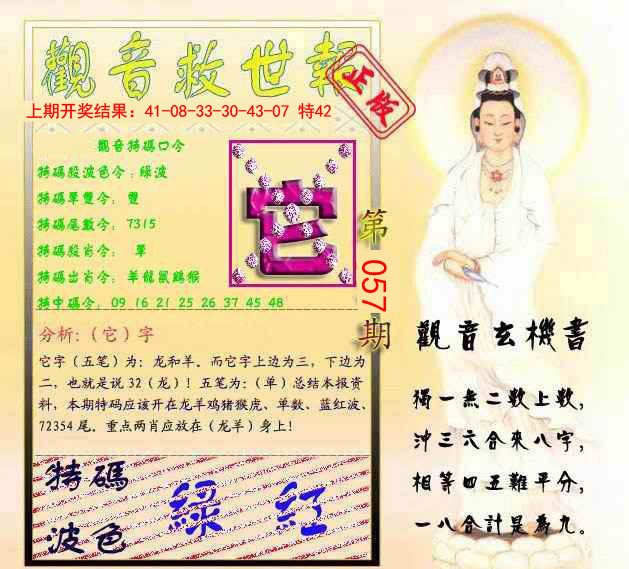 觀音救世報
正版
上期开奖结果：41-08-33-30-43-07 特42
觀音特碼口令
特碼段波色令：綠波
特碼單雙令： 雙
特碼尾數令： 7315
特碼段肖令： 單
特碼出肖令： 羊龍鼠鷄猴
特中碼令： 09 16 21 25 26 37 45 48
它
第057期
分析:（它）字
它字（五笔）为：龙和羊。而它字上边为三，下边为
二，也就是说 32（龙）！五笔为：（单）总结本报资
料，本期特码应该开在龙羊鸡猪猴虎、单数、蓝红波、
72354 尾。重点两肖应放在（龙羊）身上！
特碼
波色
綠 紅
觀音玄機書
獨一無二數上數，
沖三六合來八字，
相等四五難平分，
一八合計是為九。